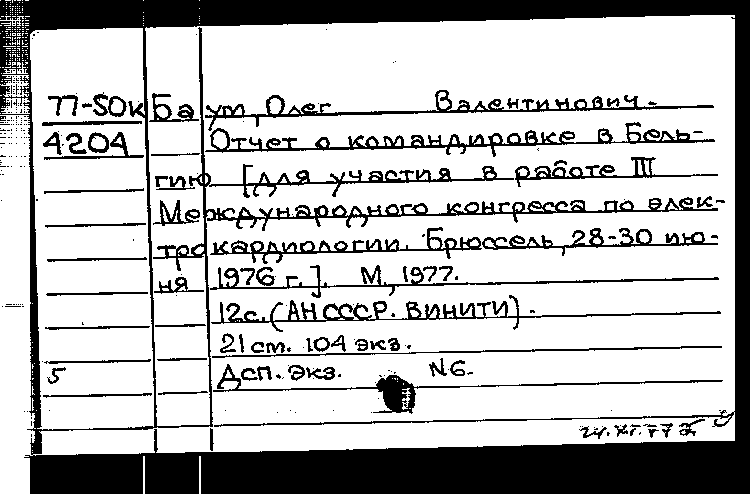 77-50к Баум, Олег Валентинович.
4204 Отчет о командировке в Бель-
гию [для участия в работе III
Международного конгресса по элек-
трокардиологии. Брюссель, 28-30 ию-
ня 1976 г.]. М., 1977.
12с. (АН СССР. ВИНИТИ).
21 ст. 104 экз.
5 Дсп. Экз. N6.